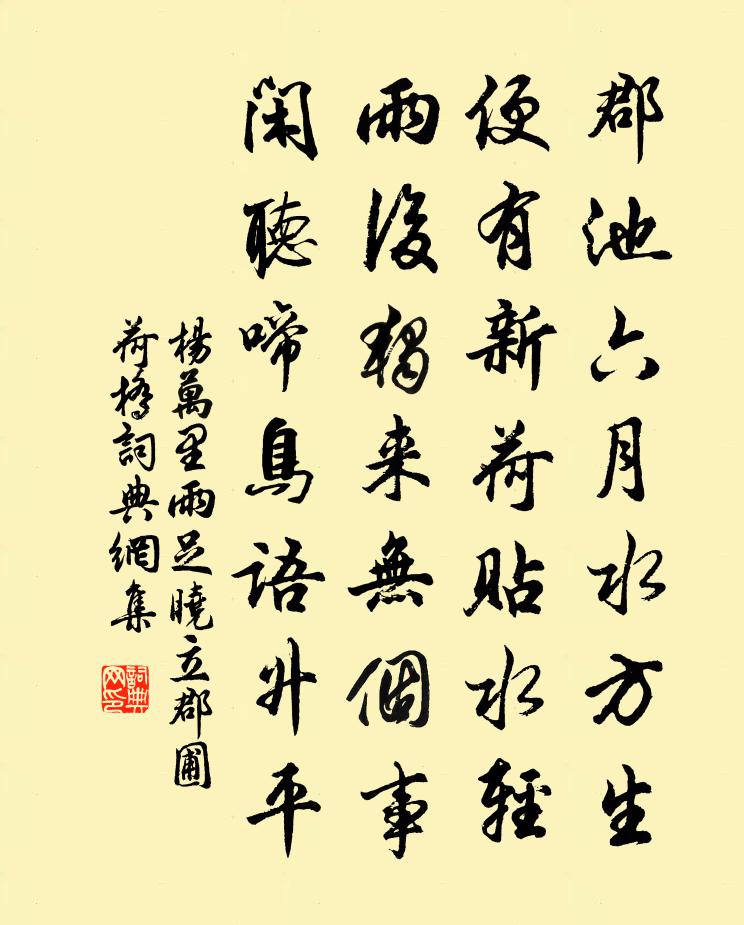 郡池六月水方生
便有新荷貼水輕
雨後獨来無個事
閑聽啼鳥語升平
楊萬里雨足曉立郡圃
荷橋詞典網集
詞典網印